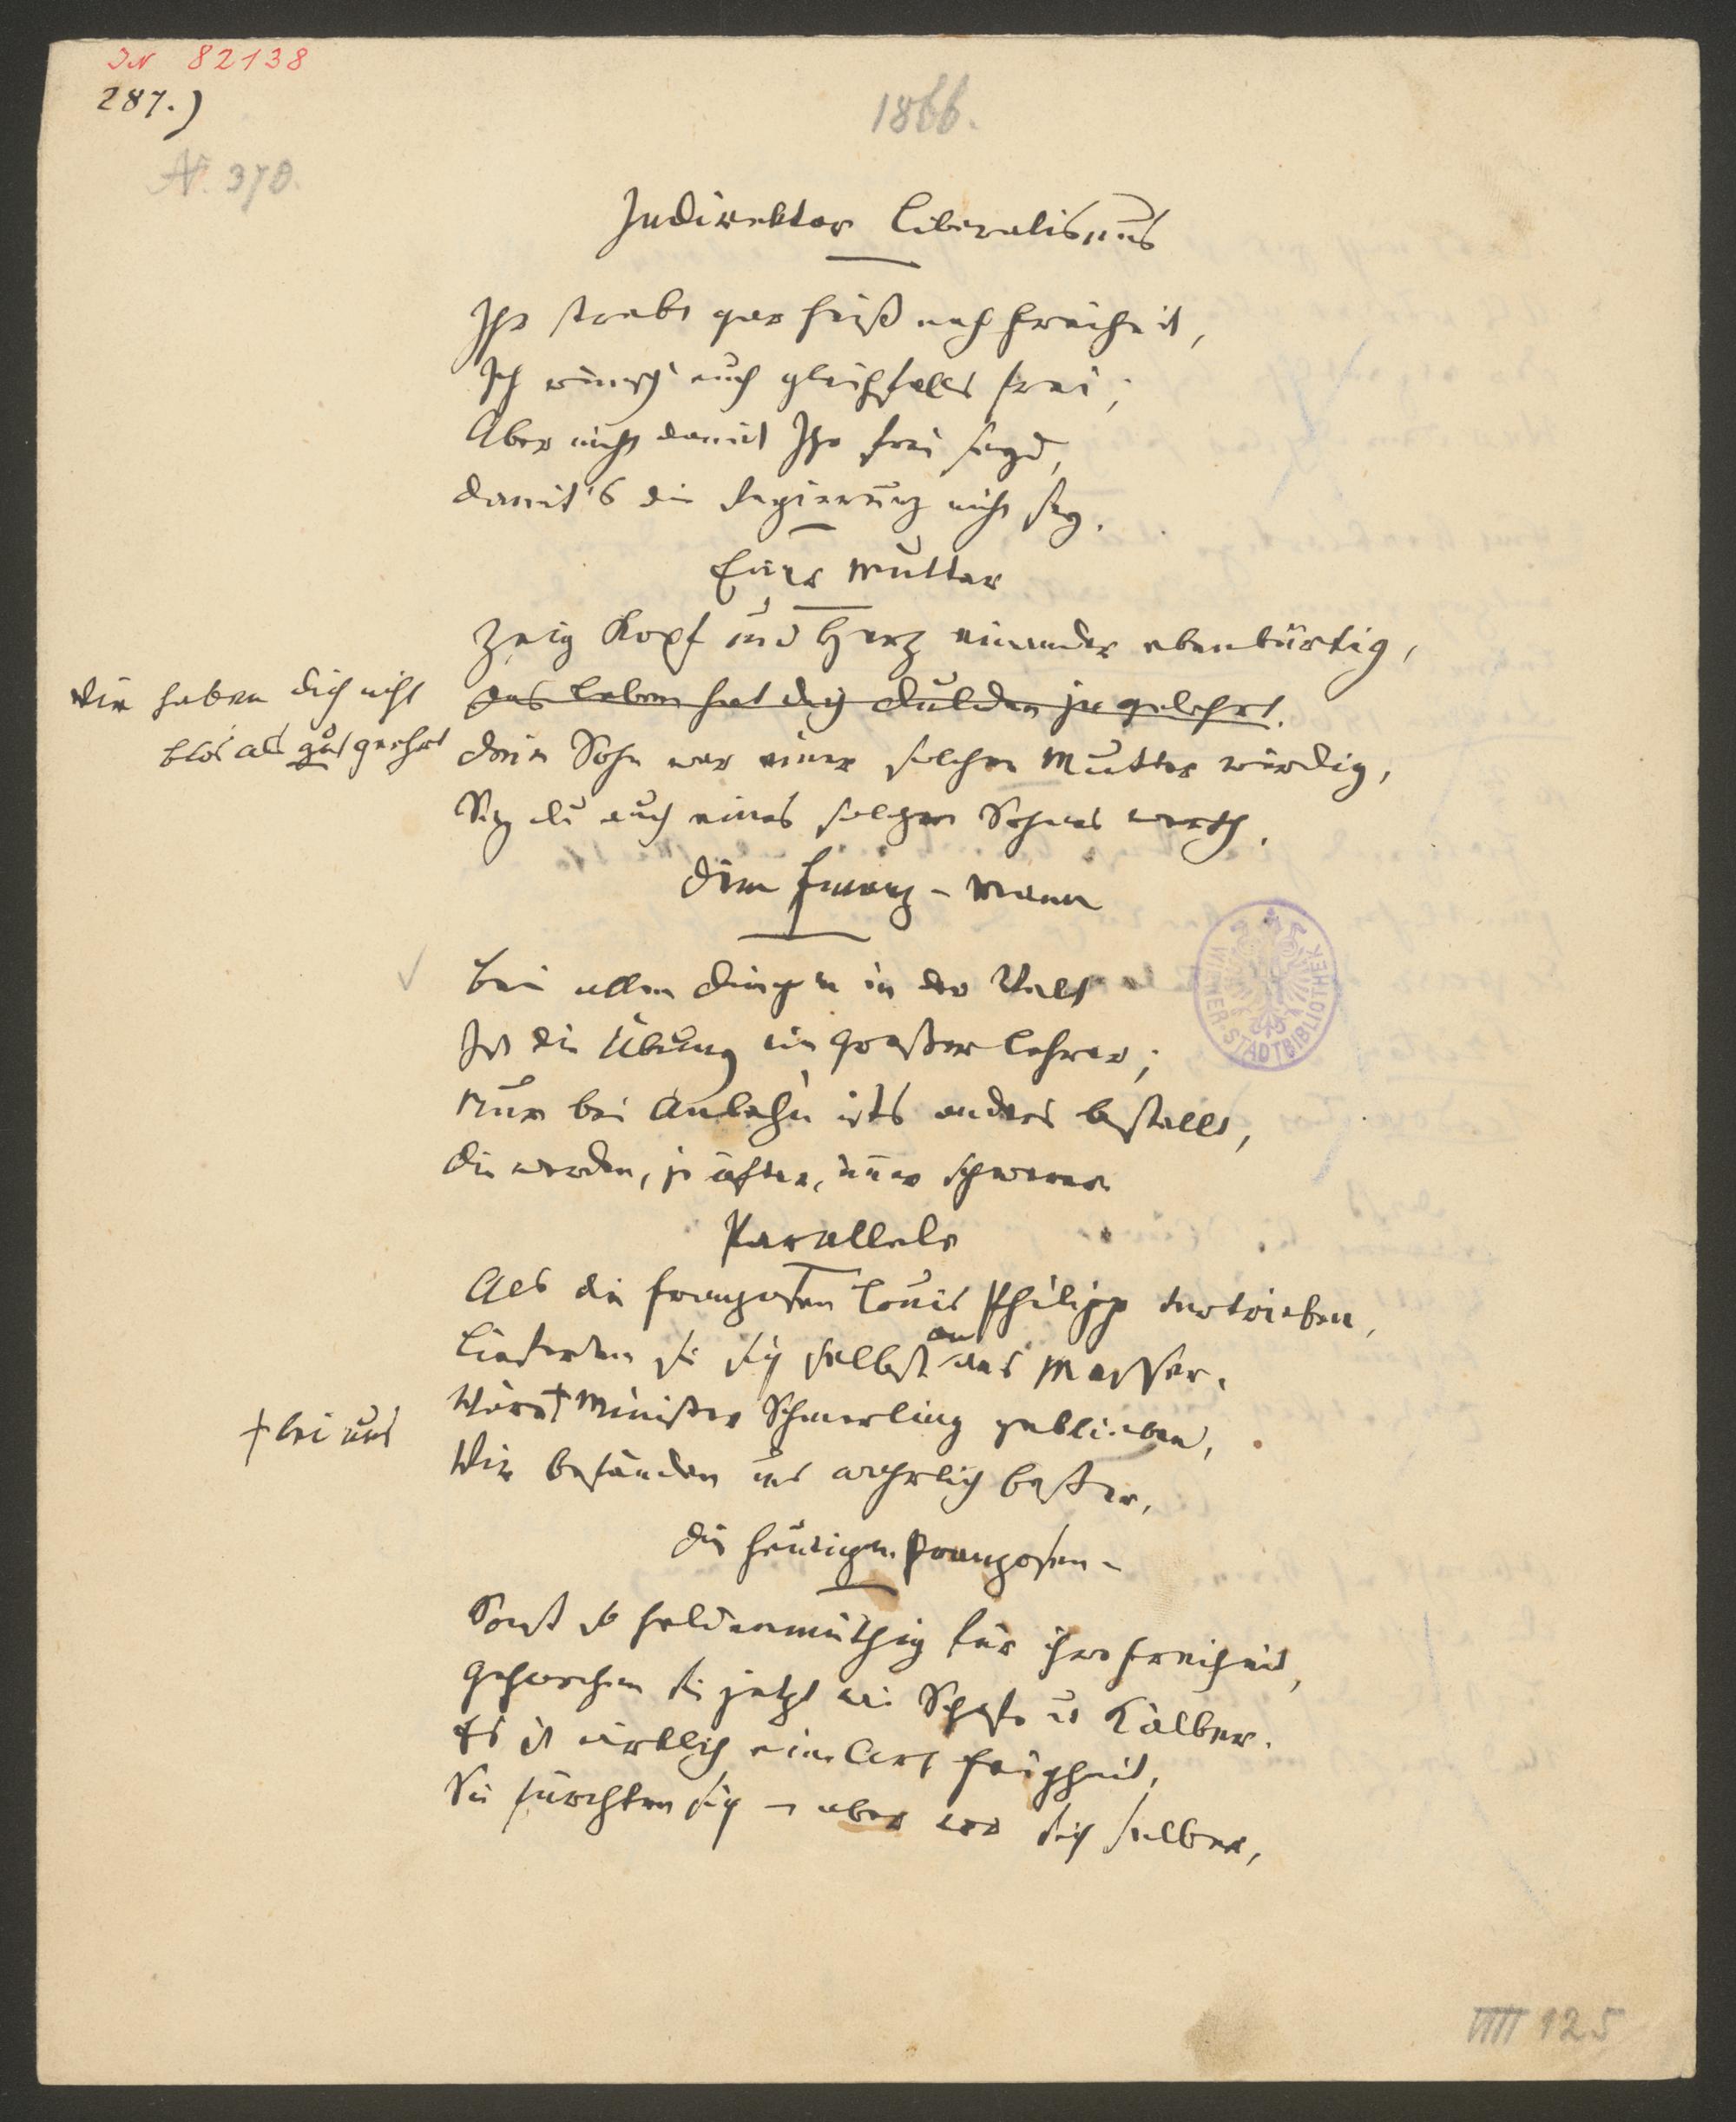 IN 82138
287.)
N. 370.
1866.
Indirekter Liberalismus
Ihr strebt gar heiß nach Freiheit,
Ich wünsch' euch gleichfalls frei;
Aber nicht damit Ihr frei seyd,
damit's die Regierung nicht sey.
Einer Mutter
Zeig Kopf und Herz einander ebenbürtig,
das Leben hat dich dulden ja gelehrt.
Wir haben dich nicht
blos als gut geehrt
dein Sohn war einer solchen Mutter würdig,
Sey du auch eines solchen Sohnes werth.
Dem Finanz-Mann
Bei allen Dingen in der Welt
Ist die Übung ein großer Lehrer;
Nur bei Anlehn ists anders bestellt,
die werden, je öfter, immer schwerer
Parallele
Als die Franzosen Louis Philipp vertrieben,
Lieferten sie sich selbst an das Messer.
Wär † Minister Schmerling geblieben,
† bei uns
Wir befänden uns wahrlich besser.
Die heutigen Franzosen
Sonst so heldenmüthig für ihre Freiheit,
Gehorchen sie jetzt wie Schafe u Kälber.
Es ist wirklich eine Art Feigheit,
Sie fürchten sich – aber vor sich selber,
WIENER STADTBIBLIOTHEK
125